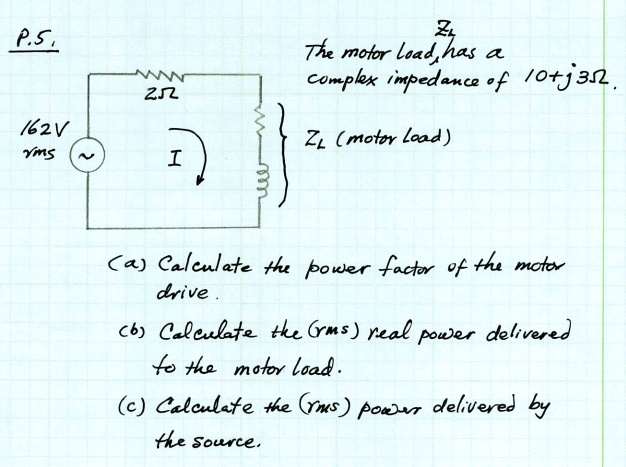 P.5.
The motor load, Z_L has a
complex impedance of 10+j3Ω.
2Ω
162V
rms
~
I
Z_L (motor load)
(a) Calculate the power factor of the motor
drive.
(b) Calculate the (rms) real power delivered
to the motor load.
(c) Calculate the (rms) power delivered by
the source.